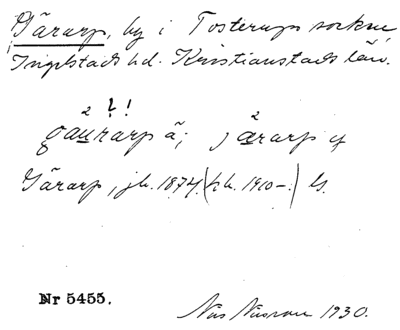 Gärarp, by i Tosterups socken
Ingelstads hd. Kristianstads län.
gäurarp ä; järarp y
Gärarp, jb. 1874. (kb. 1910–.) G.
Nr 5455.
Nils 1930.